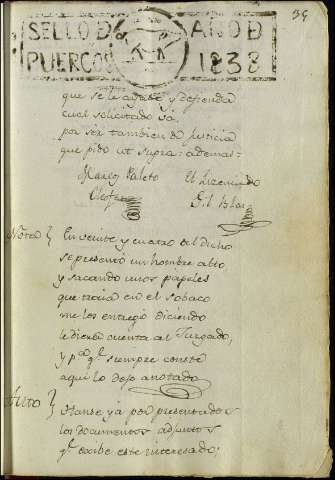 36
SELLO D AÑO D
PUERCOS 1838
que se le ayude y defienda
cual solicitado ja.
pa ser tambien de justicia
que pido ut supra: ademas:
Marcos El Lizenciado
Gil Blas
Nota } En veinte y cuatro del dicho
se presentó un hombre alto
y sacando unos papeles
que traia en el sobaco
me los entregó diciendo
le diera cuenta al Jurgado;
y pa. q.e siempre conste
aqui lo dejo anotado
Auto } Hanse ya por presentados
los documentos adjuntos
q.e exibe este interesado;